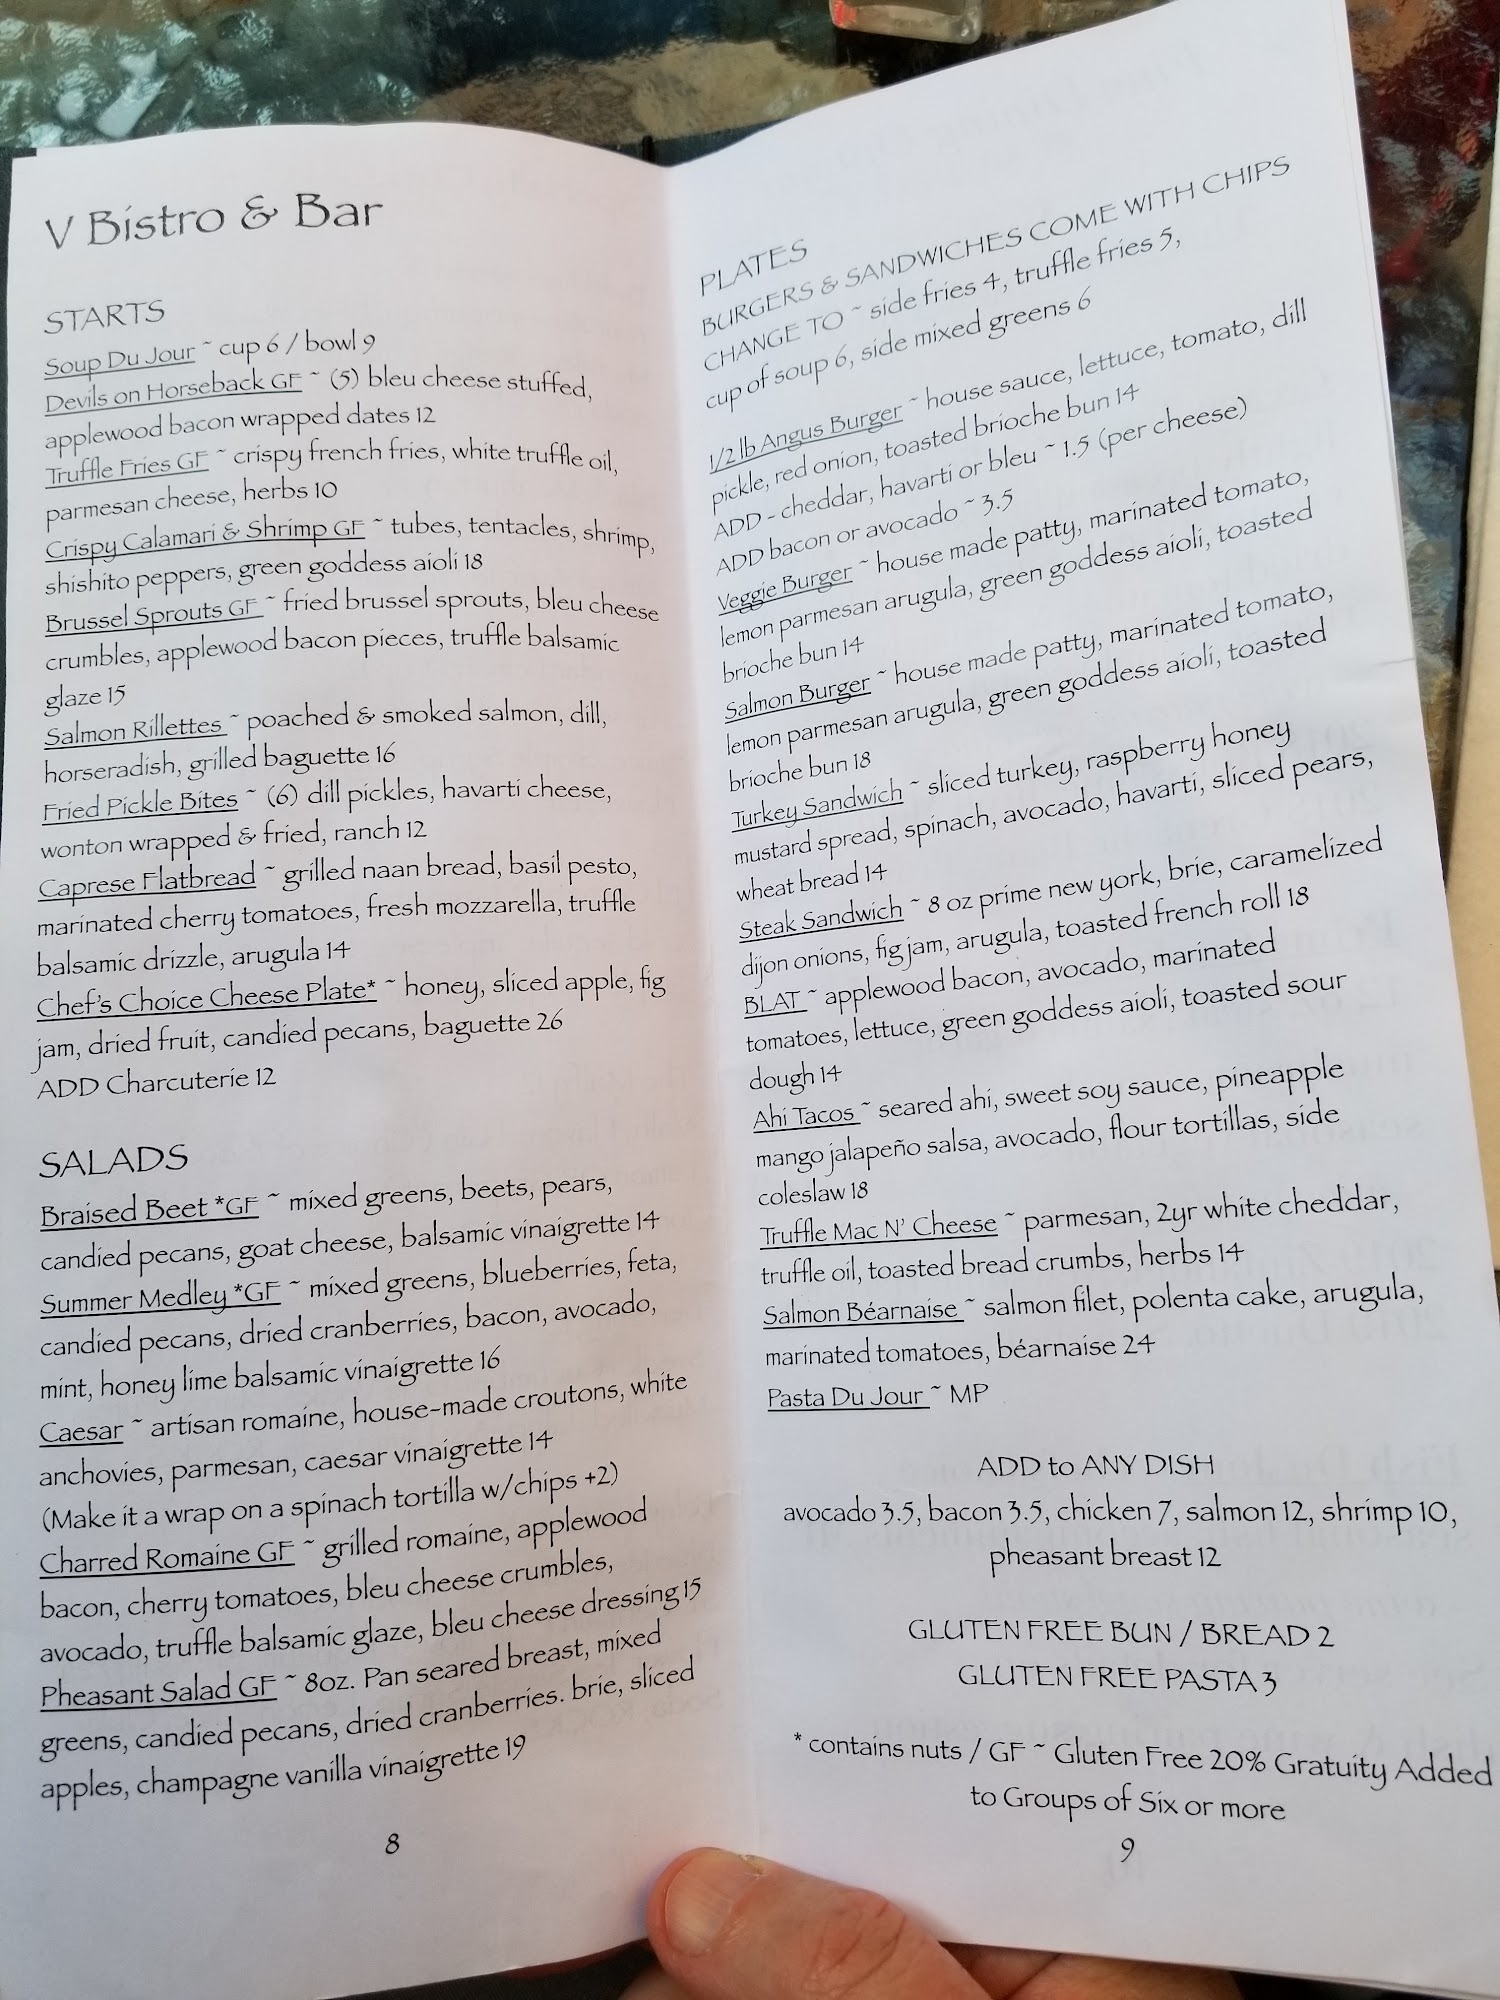 V Bistro & Bar
STARTS
Soup Du Jour ~ cup 6 / bowl 9
Devils on Horseback GF ~ (5) bleu cheese stuffed,
applewood bacon wrapped dates 12
Truffle Fries GF ~ crispy french fries, white truffle oil,
parmesan cheese, herbs 10
Crispy Calamari & Shrimp GF ~ tubes, tentacles, shrimp,
shishito peppers, green goddess aioli 18
Brussel Sprouts GF ~ fried brussel sprouts, bleu cheese
crumbles, applewood bacon pieces, truffle balsamic
glaze 15
Salmon Rillettes ~ poached & smoked salmon, dill,
horseradish, grilled baguette 16
Fried Pickle Bites ~ (6) dill pickles, havarti cheese,
wonton wrapped & fried, ranch 12
Caprese Flatbread ~ grilled naan bread, basil pesto,
marinated cherry tomatoes, fresh mozzarella, truffle
balsamic drizzle, arugula 14
Chef's Choice Cheese Plate* ~ honey, sliced apple, fig
jam, dried fruit, candied pecans, baguette 26
ADD Charcuterie 12
SALADS
Braised Beet *GF ~ mixed greens, beets, pears,
candied pecans, goat cheese, balsamic vinaigrette 14
Summer Medley *GF ~ mixed greens, blueberries, feta,
candied pecans, dried cranberries, bacon, avocado,
mint, honey lime balsamic vinaigrette 16
Caesar ~ artisan romaine, house-made croutons, white
anchovies, parmesan, caesar vinaigrette 14
(Make it a wrap on a spinach tortilla w/chips +2)
Charred Romaine GF ~ grilled romaine, applewood
bacon, cherry tomatoes, bleu cheese crumbles,
avocado, truffle balsamic glaze, bleu cheese dressing 15
Pheasant Salad GF ~ 8oz. Pan seared breast, mixed
greens, candied pecans, dried cranberries. brie, sliced
apples, champagne vanilla vinaigrette 19
8
PLATES
BURGERS & SANDWICHES COME WITH CHIPS
CHANGE TO ~ side fries 4, truffle fries 5,
cup of soup 6, side mixed greens 6
1/2 lb Angus Burger ~ house sauce, lettuce, tomato, dill
pickle, red onion, toasted brioche bun 14
ADD - cheddar, havarti or bleu ~ 1.5 (per cheese)
ADD bacon or avocado ~ 3.5
Veggie Burger ~ house made patty, marinated tomato,
lemon parmesan arugula, green goddess aioli, toasted
brioche bun 14
Salmon Burger ~ house made patty, marinated tomato,
lemon parmesan arugula, green goddess aioli, toasted
brioche bun 18
Turkey Sandwich ~ sliced turkey, raspberry honey
mustard spread, spinach, avocado, havarti, sliced pears,
wheat bread 14
Steak Sandwich ~ 8 oz prime new york, brie, caramelized
dijon onions, fig jam, arugula, toasted french roll 18
BLAT ~ applewood bacon, avocado, marinated
tomatoes, lettuce, green goddess aioli, toasted sour
dough 14
Ahi Tacos ~ seared ahi, sweet soy sauce, pineapple
mango jalapeño salsa, avocado, flour tortillas, side
coleslaw 18
Truffle Mac N' Cheese ~ parmesan, 2yr white cheddar,
truffle oil, toasted bread crumbs, herbs 14
Salmon Béarnaise ~ salmon filet, polenta cake, arugula,
marinated tomatoes, béarnaise 24
Pasta Du Jour ~ MP
ADD to ANY DISH
avocado 3.5, bacon 3.5, chicken 7, salmon 12, shrimp 10,
pheasant breast 12
GLUTEN FREE BUN / BREAD 2
GLUTEN FREE PASTA 3
* contains nuts / GF ~ Gluten Free 20% Gratuity Added
to Groups of Six or more
9